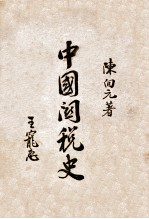 陳向元著
中國關税史
王寵惠